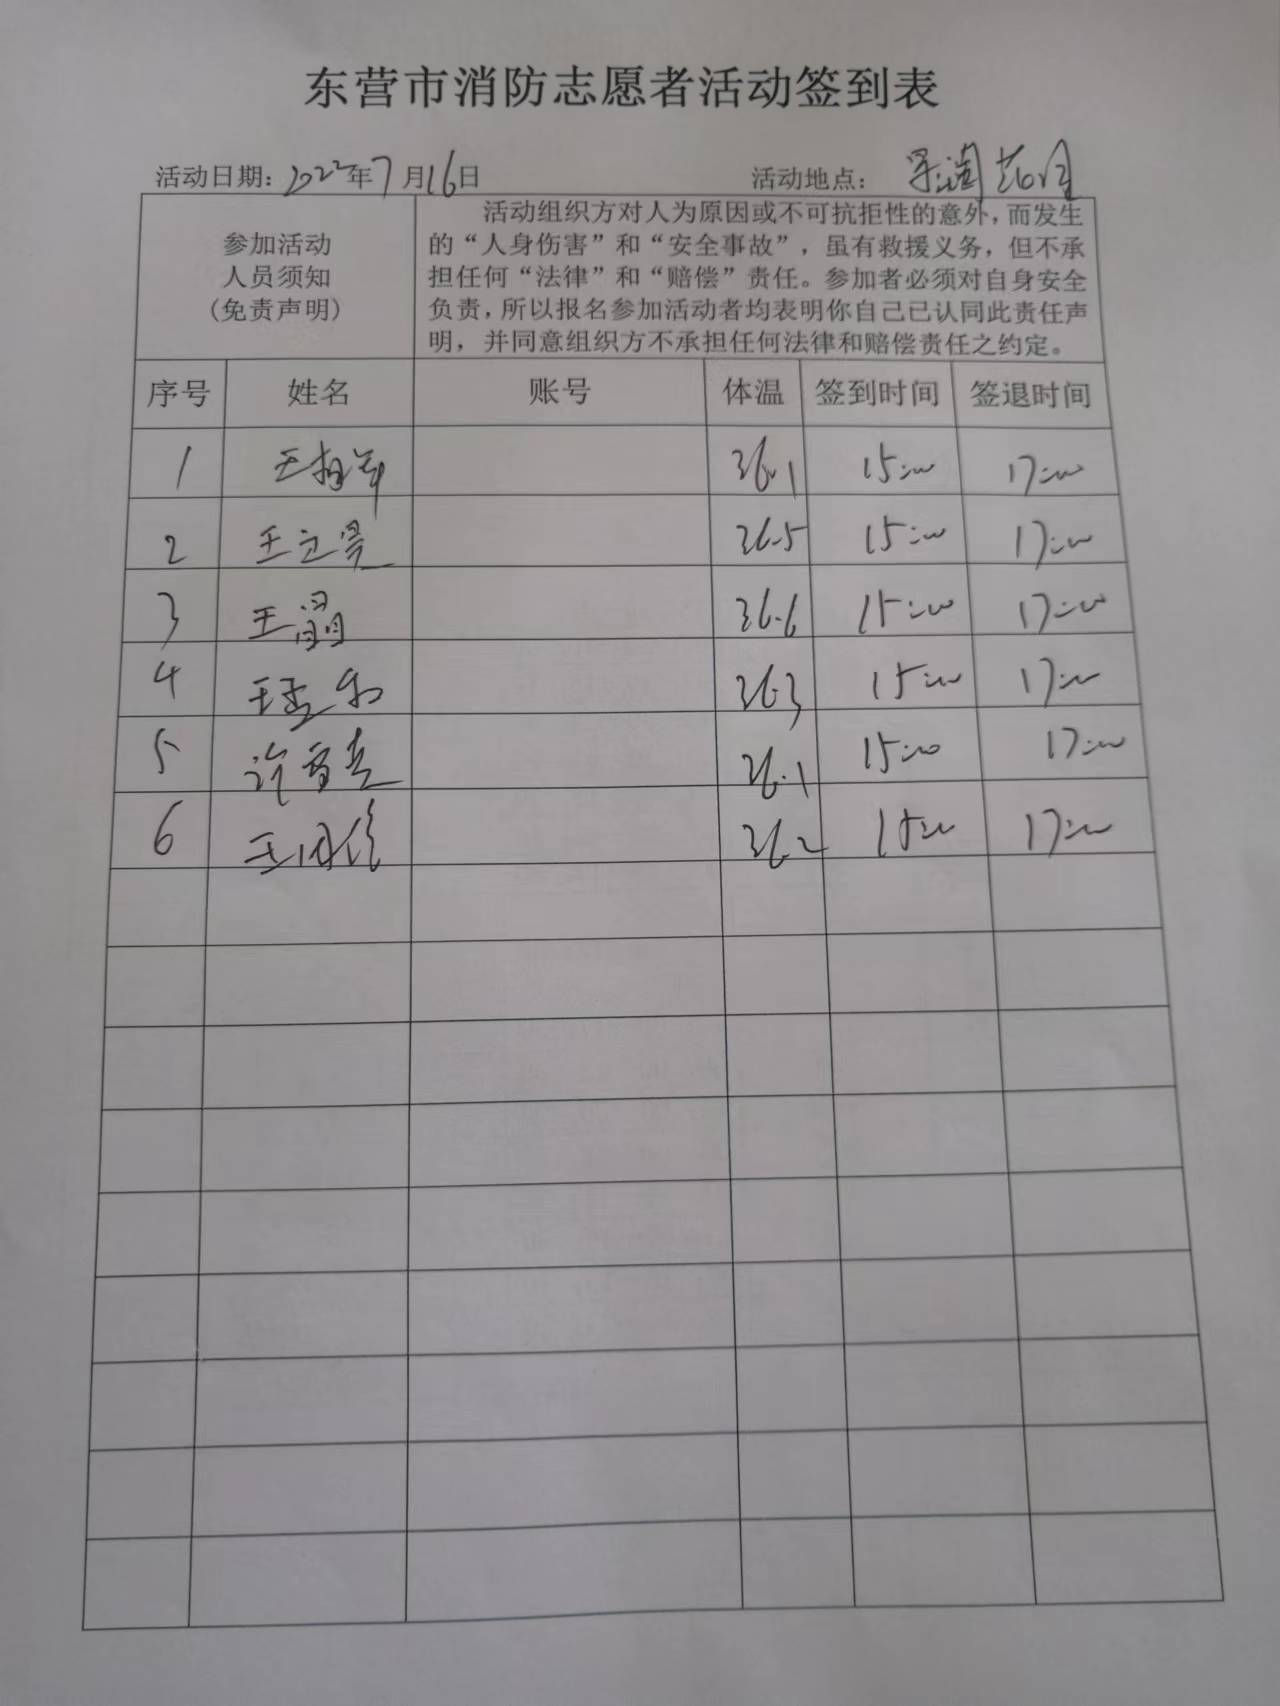 东营市消防志愿者活动签到表
活动日期：2022年7月16日 活动地点：
参加活动
人员须知
（免责声明）
活动组织方对人为原因或不可抗拒性的意外，而发生
的“人身伤害”和“安全事故”，虽有救援义务，但不承
担任何“法律”和“赔偿”责任。参加者必须对自身安全
负责，所以报名参加活动者均表明你自己已认同此责任声
明，并同意组织方不承担任何法律和赔偿责任之约定。
序号 姓名 账号 体温 签到时间 签退时间
1 王 36.1 15:00 17:00
2 王立昊 36.5 15:00 17:00
3 王晶 36.6 15:00 17:00
4 王孟 36.3 15:00 17:00
5 许 36.1 15:00 17:00
6 王 36.2 15:00 17:00